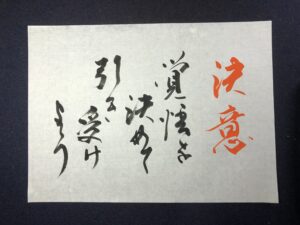 決意
覚悟を
決めて
引き受け
よう